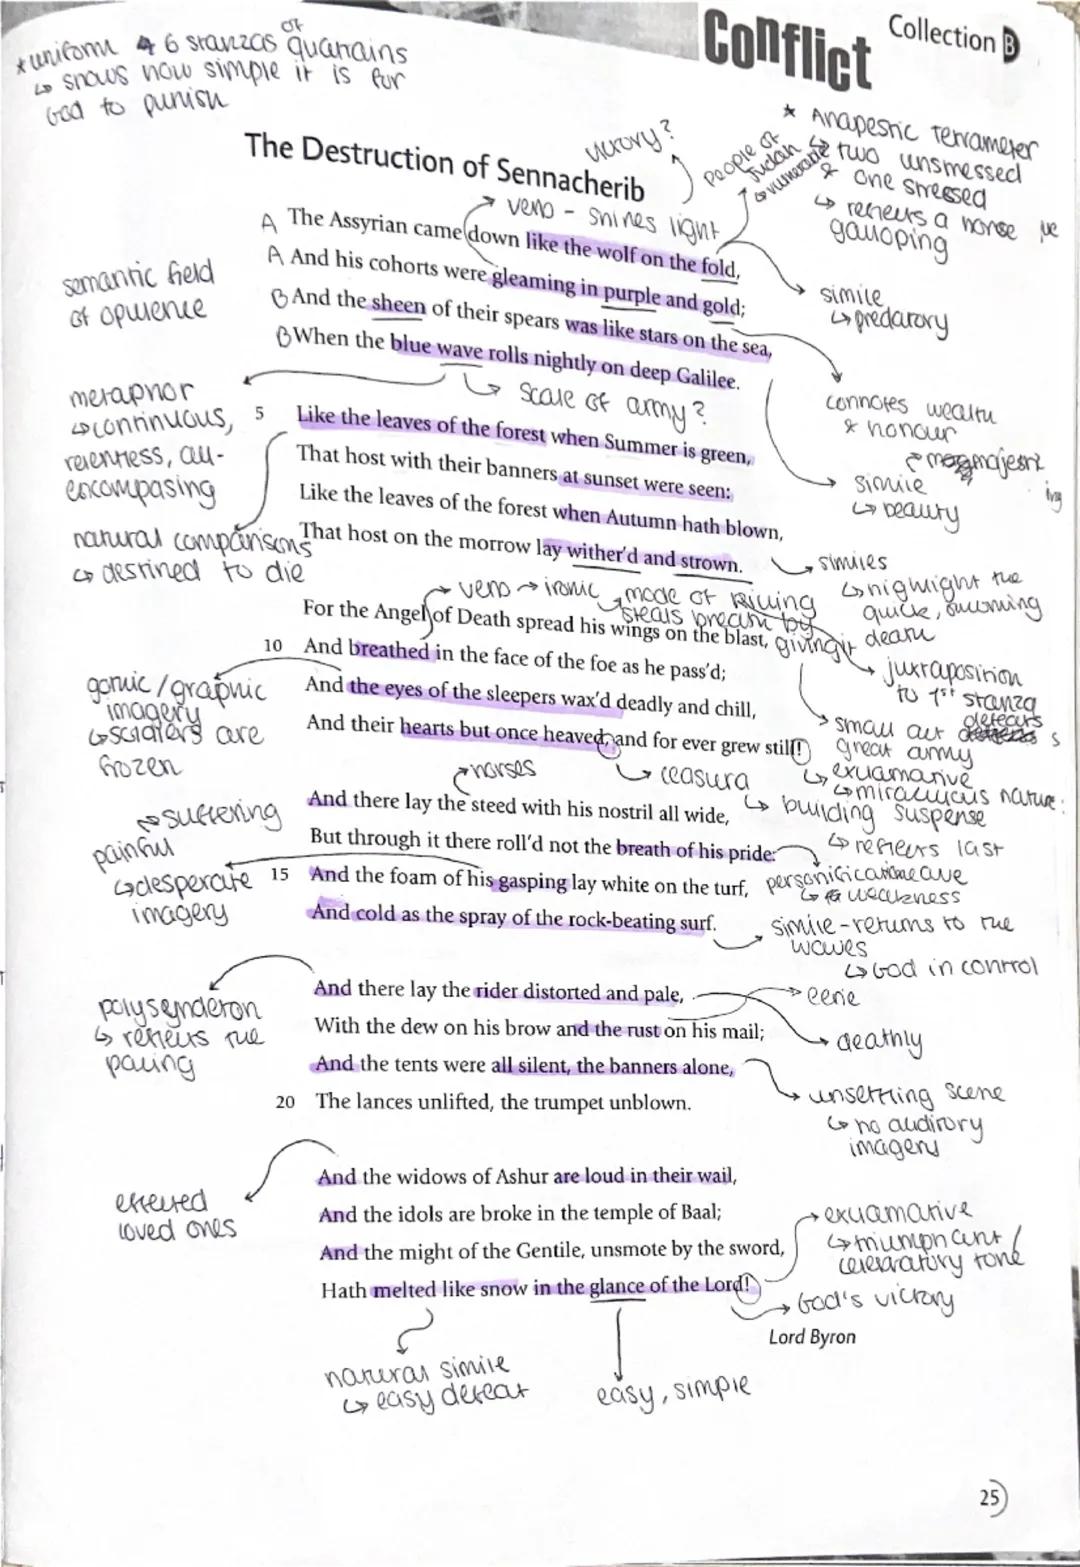 * uniform 6 stanzas of quatrains
↳ shows how simple it is for
God to punish
Conflict
Collection B
The Destruction of Sennacherib
victory?
people of
Judah
↳ vulnerable
* Anapestic tetrameter
↳ two unstressed
& one stressed
↳ reflects a horse
galloping
verb - shines light
A The Assyrian came down like the wolf on the fold,
A And his cohorts were gleaming in purple and gold;
B And the sheen of their spears was like stars on the sea,
B When the blue wave rolls nightly on deep Galilee.
semantic field
of opulence
simile
↳ predatory
scale of army?
connotes wealth
& honour
metaphor
↳ continuous,
relentless, all-
encompasing
simile
↳ beauty
5 Like the leaves of the forest when Summer is green,
That host with their banners at sunset were seen:
Like the leaves of the forest when Autumn hath blown,
That host on the morrow lay wither'd and strown.
natural comparisons
↳ destined to die
similes
↳ highlight the
quick, oncoming
death
verb → ironic
mode of killing
steals breath by
giving it
For the Angel of Death spread his wings on the blast,
10 And breathed in the face of the foe as he pass'd;
And the eyes of the sleepers wax'd deadly and chill,
And their hearts but once heaved, and for ever grew still!
gothic / graphic
imagery
↳ soldiers are
frozen
juxtaposition
to 1st stanza
small act defeats
great army
caesura
↳ building suspense
↳ reflects last
exclamative
↳ miraculous nature
horses
And there lay the steed with his nostril all wide,
But through it there roll'd not the breath of his pride:
15 And the foam of his gasping lay white on the turf,
And cold as the spray of the rock-beating surf.
suffering
painful
↳ desperate
imagery
↳ weakness
simile - returns to the
waves
↳ God in control
And there lay the rider distorted and pale,
With the dew on his brow and the rust on his mail;
And the tents were all silent, the banners alone,
20 The lances unlifted, the trumpet unblown.
polysyndeton
↳ reflects the
pacing
eerie
deathly
unsettling scene
↳ no auditory
imagery
And the widows of Ashur are loud in their wail,
And the idols are broke in the temple of Baal;
And the might of the Gentile, unsmote by the sword,
Hath melted like snow in the glance of the Lord!
effected
loved ones
exclamative
↳ triumphant /
celebratory tone
↳ God's victory
Lord Byron
natural simile
↳ easy defeat
easy, simple
25